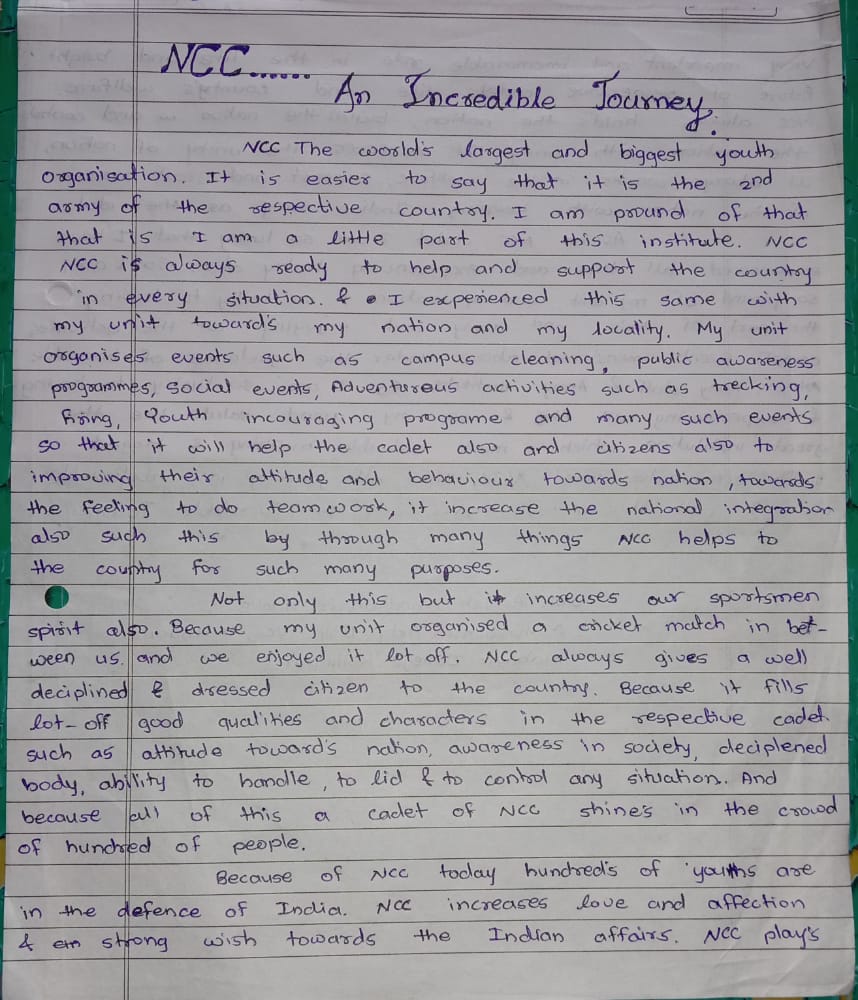 NCC......
An Incredible Journey.
NCC The world's largest and biggest youth
organisation. It is easier to say that it is the 2nd
army of the respective country. I am pround of that
that is I am a little part of this institute. NCC
NCC is always ready to help and support the country
in every situation. & I experienced this same with
my unit toward's my nation and my locality. My unit
organises events such as campus cleaning, public awareness
programmes, social events, Adventureus activities such as trecking,
firing, Youth incouraging programe and many such events
so that it will help the cadet also and citizens also to
improving their attitude and behaviour towards nation, towards
the feeling to do team work, it increase the national integration
also such this by through many things NCC helps to
the country for such many purposes.
Not only this but it increases our sportsmen
spirit also. Because my unit organised a cricket match in bet-
ween us. and we enjoyed it lot off. NCC always gives a well
deciplined & dressed citizen to the country. Because it fills
lot-off good qualities and characters in the respective cadet.
such as attitude toward's nation, awareness in society, deciplened
body, ability to handle, to lid & to control any situation. And
because all of this a cadet of NCC shine's in the crowd
of hundred of people.
Because of NCC today hundred's of youths are
in the defence of India. NCC increases love and affection
& strong wish towards the Indian affairs. NCC play's